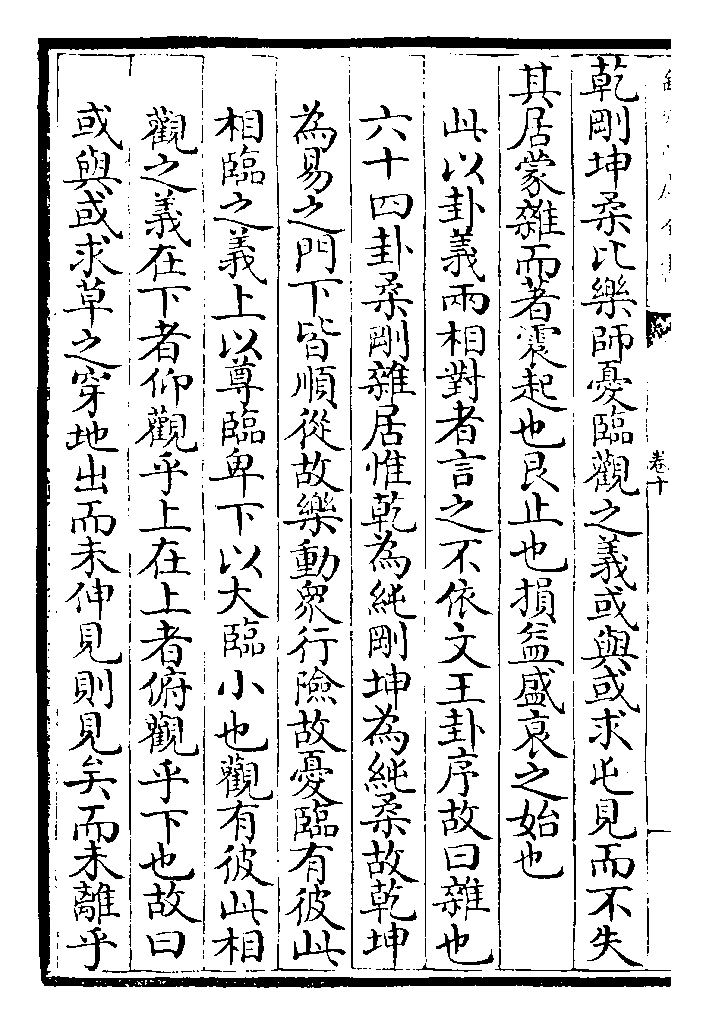 乾剛坤柔比樂師憂臨觀之義或與或求屯見而不失
其居蒙雜而著震起也艮止也損益盛衰之始也
此以卦義兩相對者言之不依文王卦序故曰雜也
六十四卦柔剛雜居惟乾為純剛坤為純柔故乾坤
為易之門下皆順從故樂動衆行險故憂臨有彼此
相臨之義上以尊臨卑下以大臨小也觀有彼此相
觀之義在下者仰觀乎上在上者俯觀乎下也故曰
或與或求草之穿地出而未伸見則見矣而未離乎
卷十